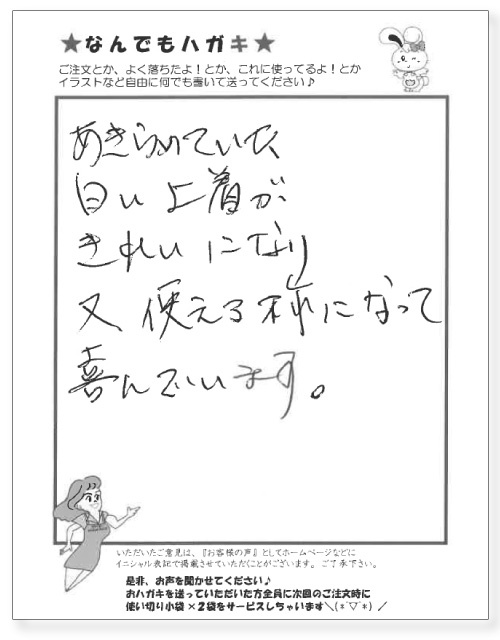 ★なんでもハガキ★
ご注文とか、よく落ちたよ！とか、これに使ってるよ！とか
イラストなど自由に何でも書いて送ってください♪
あきらめていた
白い上着が
きれいになり
又、使える様になって
喜んでいます。
いただいたご意見は、『お客様の声』としてホームページなどに
イニシャル表記で掲載させていただくことがございます。ご了承下さい。
是非、お声を聞かせてください♪
おハガキを送っていただいた方全員に次回のご注文時に
使い切り小袋×２袋をサービスしちゃいます＼(*ﾟ▽ﾟ*)／